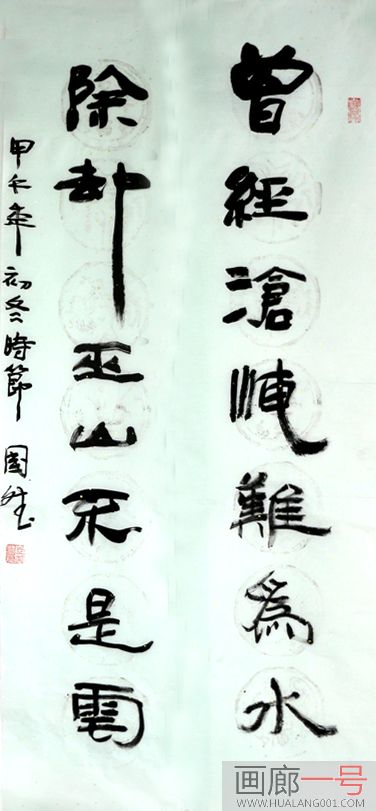 曾經滄海難爲水
除却巫山不是雲
甲午年初冬時節 國
画廊一号
WWW.HUALANG001.COM